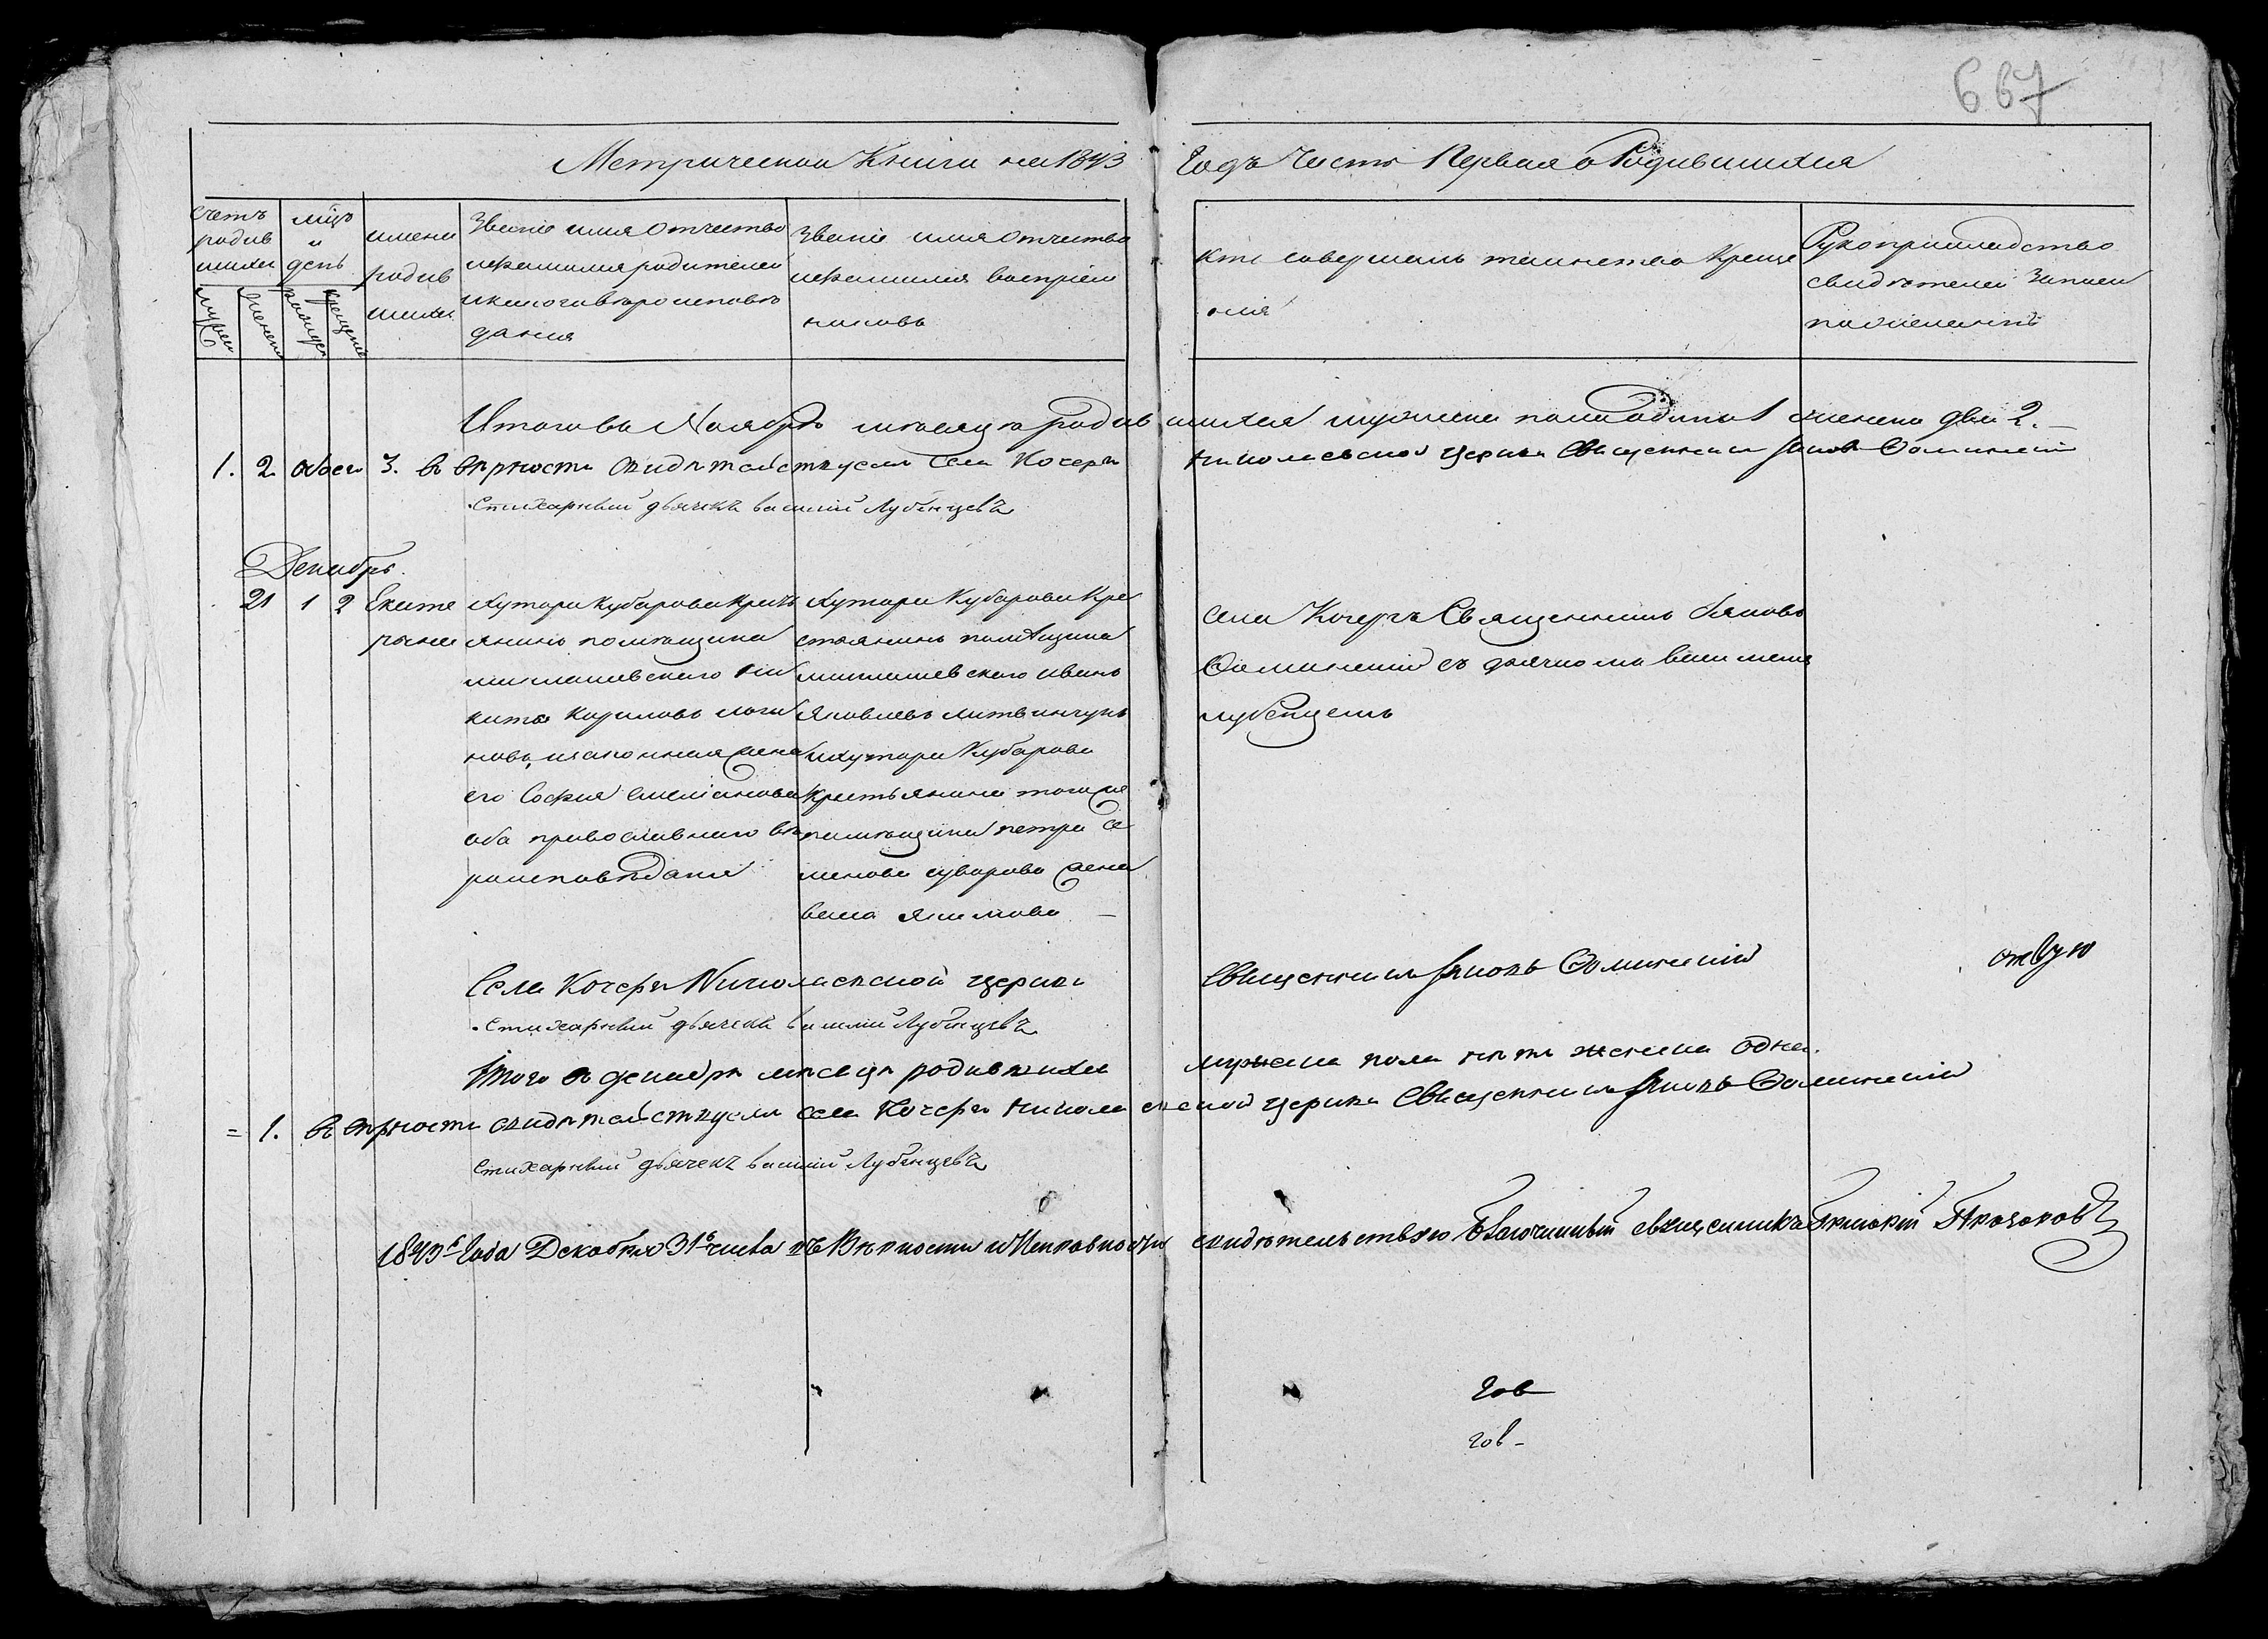 667
Метрическая Книга на 1843 годъ Часть Первая о Родившихся
счетъ родив шихся
мужес
женск
мѣцъ и день
рожден
крещение
имена родив шихся
Званіе имя Отчество
ифамилия родителей
икакого вѣроисповѣ
дания
Званіе имя Отчество
ифамилия воспріем
никовъ
Кто совершалъ таинство Креще
нія
Рукоприкладство
свидѣтелей Записи
пожеланію
Итого въ Ноябрѣ месяце родив шихся мужеска пола одинъ 1 женска два 2.
1. 2. обоего 3. въ верности свидѣтельствуемъ села Кочеръ Николаевской церкви Священникъ Іаковъ Фоминскій
Стихарный дьячекъ василий Лубенцевъ
Декабрь
21 1 2 Екате
рина
Хутора Кубарова Крест
янинъ помѣщика
милашевскаго Ни
кита Кириловъ логи
новъ, изаконная жена
его София емелианова
оба православнаго вѣ
роисповѣдания
Хутора Кубарова Кре
стьянинъ помѣщика
милашевскаго иванъ
Яковлевъ литвинчукъ
ихутора Кубарова
крестьянина тогоже
помѣщика петра Се
менова суворова жена
васса Якимова
села Кочеръ Священникъ Іаковъ
Фоминский съ дьячкомъ васи лиемъ
лубенцемъ
Села Кочеръ Николаевской церкви Священникъ Іаковъ Фоминский
Стихарный дьячекъ василий Лубенцевъ
Итого въ декабрѣ месяце родившихся мужеска пола нѣтъ женска одна
= 1. въ верности свидѣтельствуемъ села Кочеръ Николаевской церкви Священникъ Іаковъ Фоминский
Стихарный дьячекъ василий Лубенцевъ
1843 года Декабря 31 числа въ Верности и Исправности свидѣтельствую Благочинный священникъ